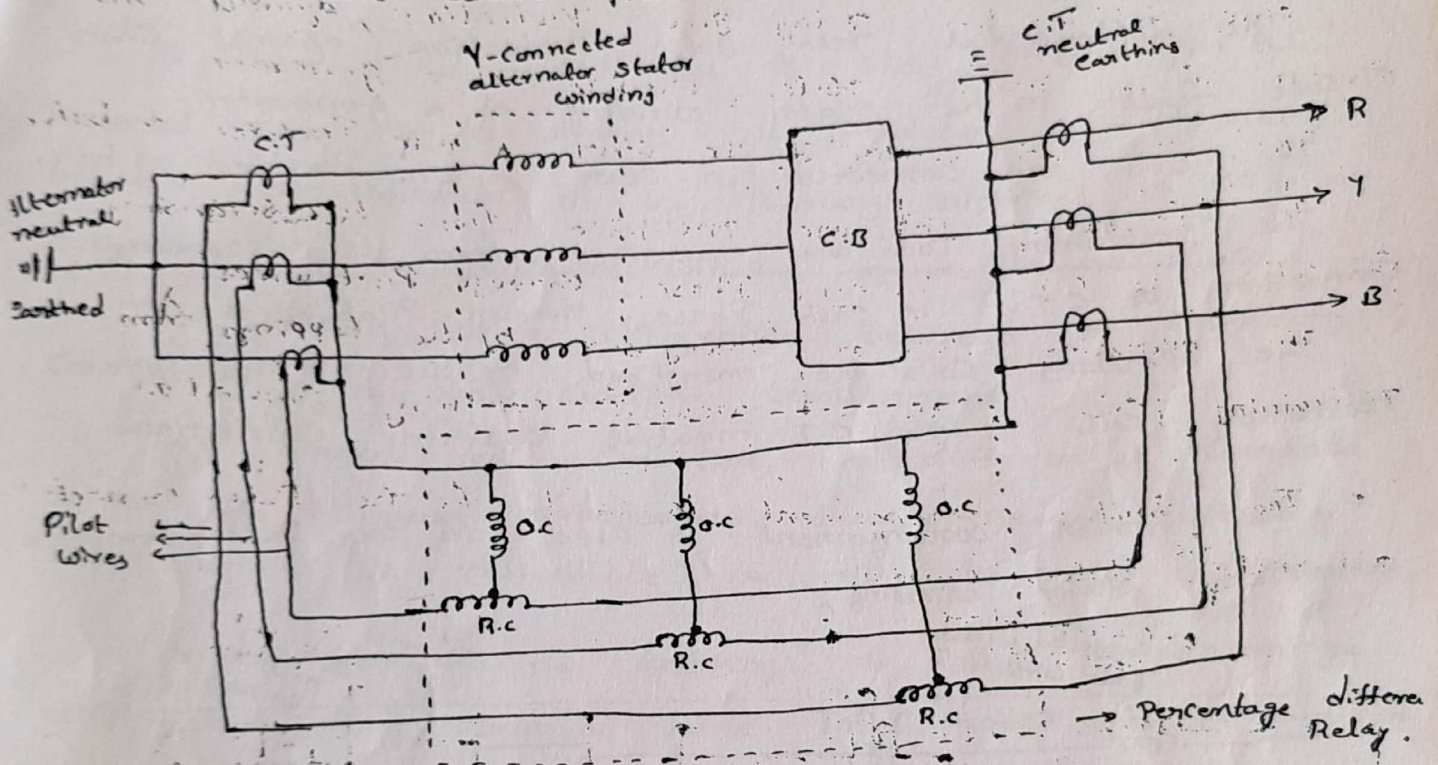 Y-Connected
alternator stator
winding
C.T
neutral
earthing
C.T
R
Alternator
neutral
Y
C.B
Earthed
B
Pilot
wires
O.C
O.C
O.C
R.C
R.C
R.C
→ Percentage differe
Relay.